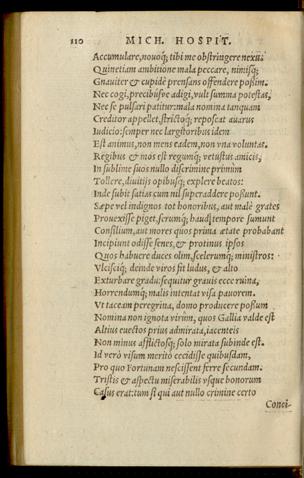 110 MICH. HOSPIT.
Accumulare, nouoq; tibi me obstringere nexu.
Quinetiam ambitione mala peccare, nimisq;
Gnauiter & cupidè prensans offendere possim.
Nec cogi, precibusve adigi, vult summa potestas,
Nec se pulsari patitur: mala nomina tanquam
Creditor appellet, strictoq; reposcat auarus
Iudicio: semper nec largitoribus idem
Est animus, non mens eadem, non vna voluntas.
Regibus & mos est regumq; vetustus amicis,
In sublime suos nullo discrimine primùm
Tollere, diuitijs opibusq; explere beatos:
Inde subit satias cum nil superaddere possunt.
Sæpe vel indignos tot honoribus, aut malè grates
Prouexisse piget, serumq; haud tempore sumunt
Consilium, aut mores quos prima ætate probabant
Incipiunt odisse senes, & protinus ipsos
Quos habuere duces olim, scelerumq; ministros:
Vlciscitq; deinde viros fit ludus, & alto
Exturbare gradu: sequitur grauis ecce ruina,
Horrendumq; malis intentat visa pauorem.
Vt taceam peregrina, domo producere possum
Nomina non ignota virûm, quos Gallia valde est
Altius euectos prius admirata, iacenteis
Non minus afflictosq; solo mirata subinde est.
Id verò visum meritò cecidisse quibusdam,
Pro quo Fortunam nescissent ferre secundam.
Tristis & aspectu miserabilis vsque bonorum
Casus erat: tum si qui aut nullo crimine certo
Conci-